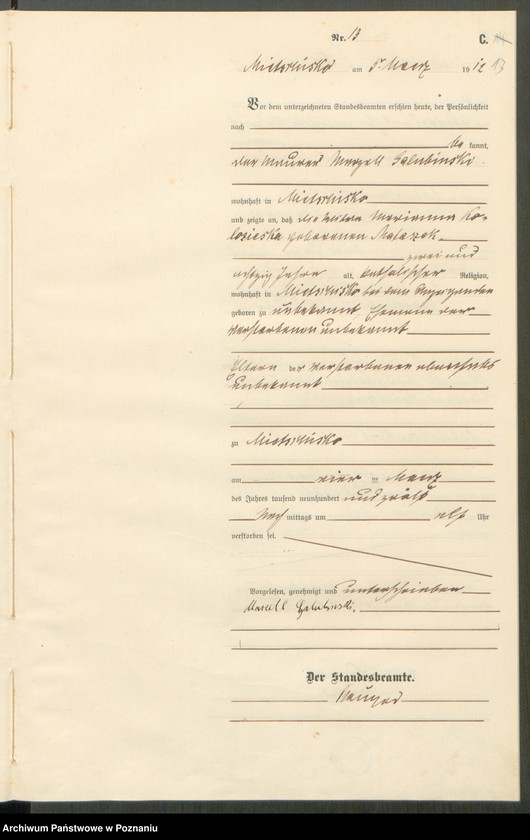 Nr. 13
C. 13
Mietschisko am 5. Maerz 1912
Vor dem unterzeichneten Standesbeamten erschien heute, der Persönlichkeit
nach
be kannt,
der Maurer Marzell Galubinski
wohnhaft in Mietschisko
und zeigte an, daß die Witwe Marianna
geborenen
zwei und
achtzig Jahre alt, katholischer Religion,
wohnhaft in Mietschisko bei dem Anzeigenden
geboren zu unbekannt, Ehemann der
Verstorbenen unbekannt
Eltern der Verstorbenen ebenfalls
unbekannt
zu Mietschisko
am vier ten Maerz
des Jahres tausend neunhundert und zwölf
Nach mittags um elf Uhr
verstorben sei.
Vorgelesen, genehmigt und unterschrieben
Marcell Galubinski.
Der Standesbeamte.
Archiwum Państwowe w Poznaniu